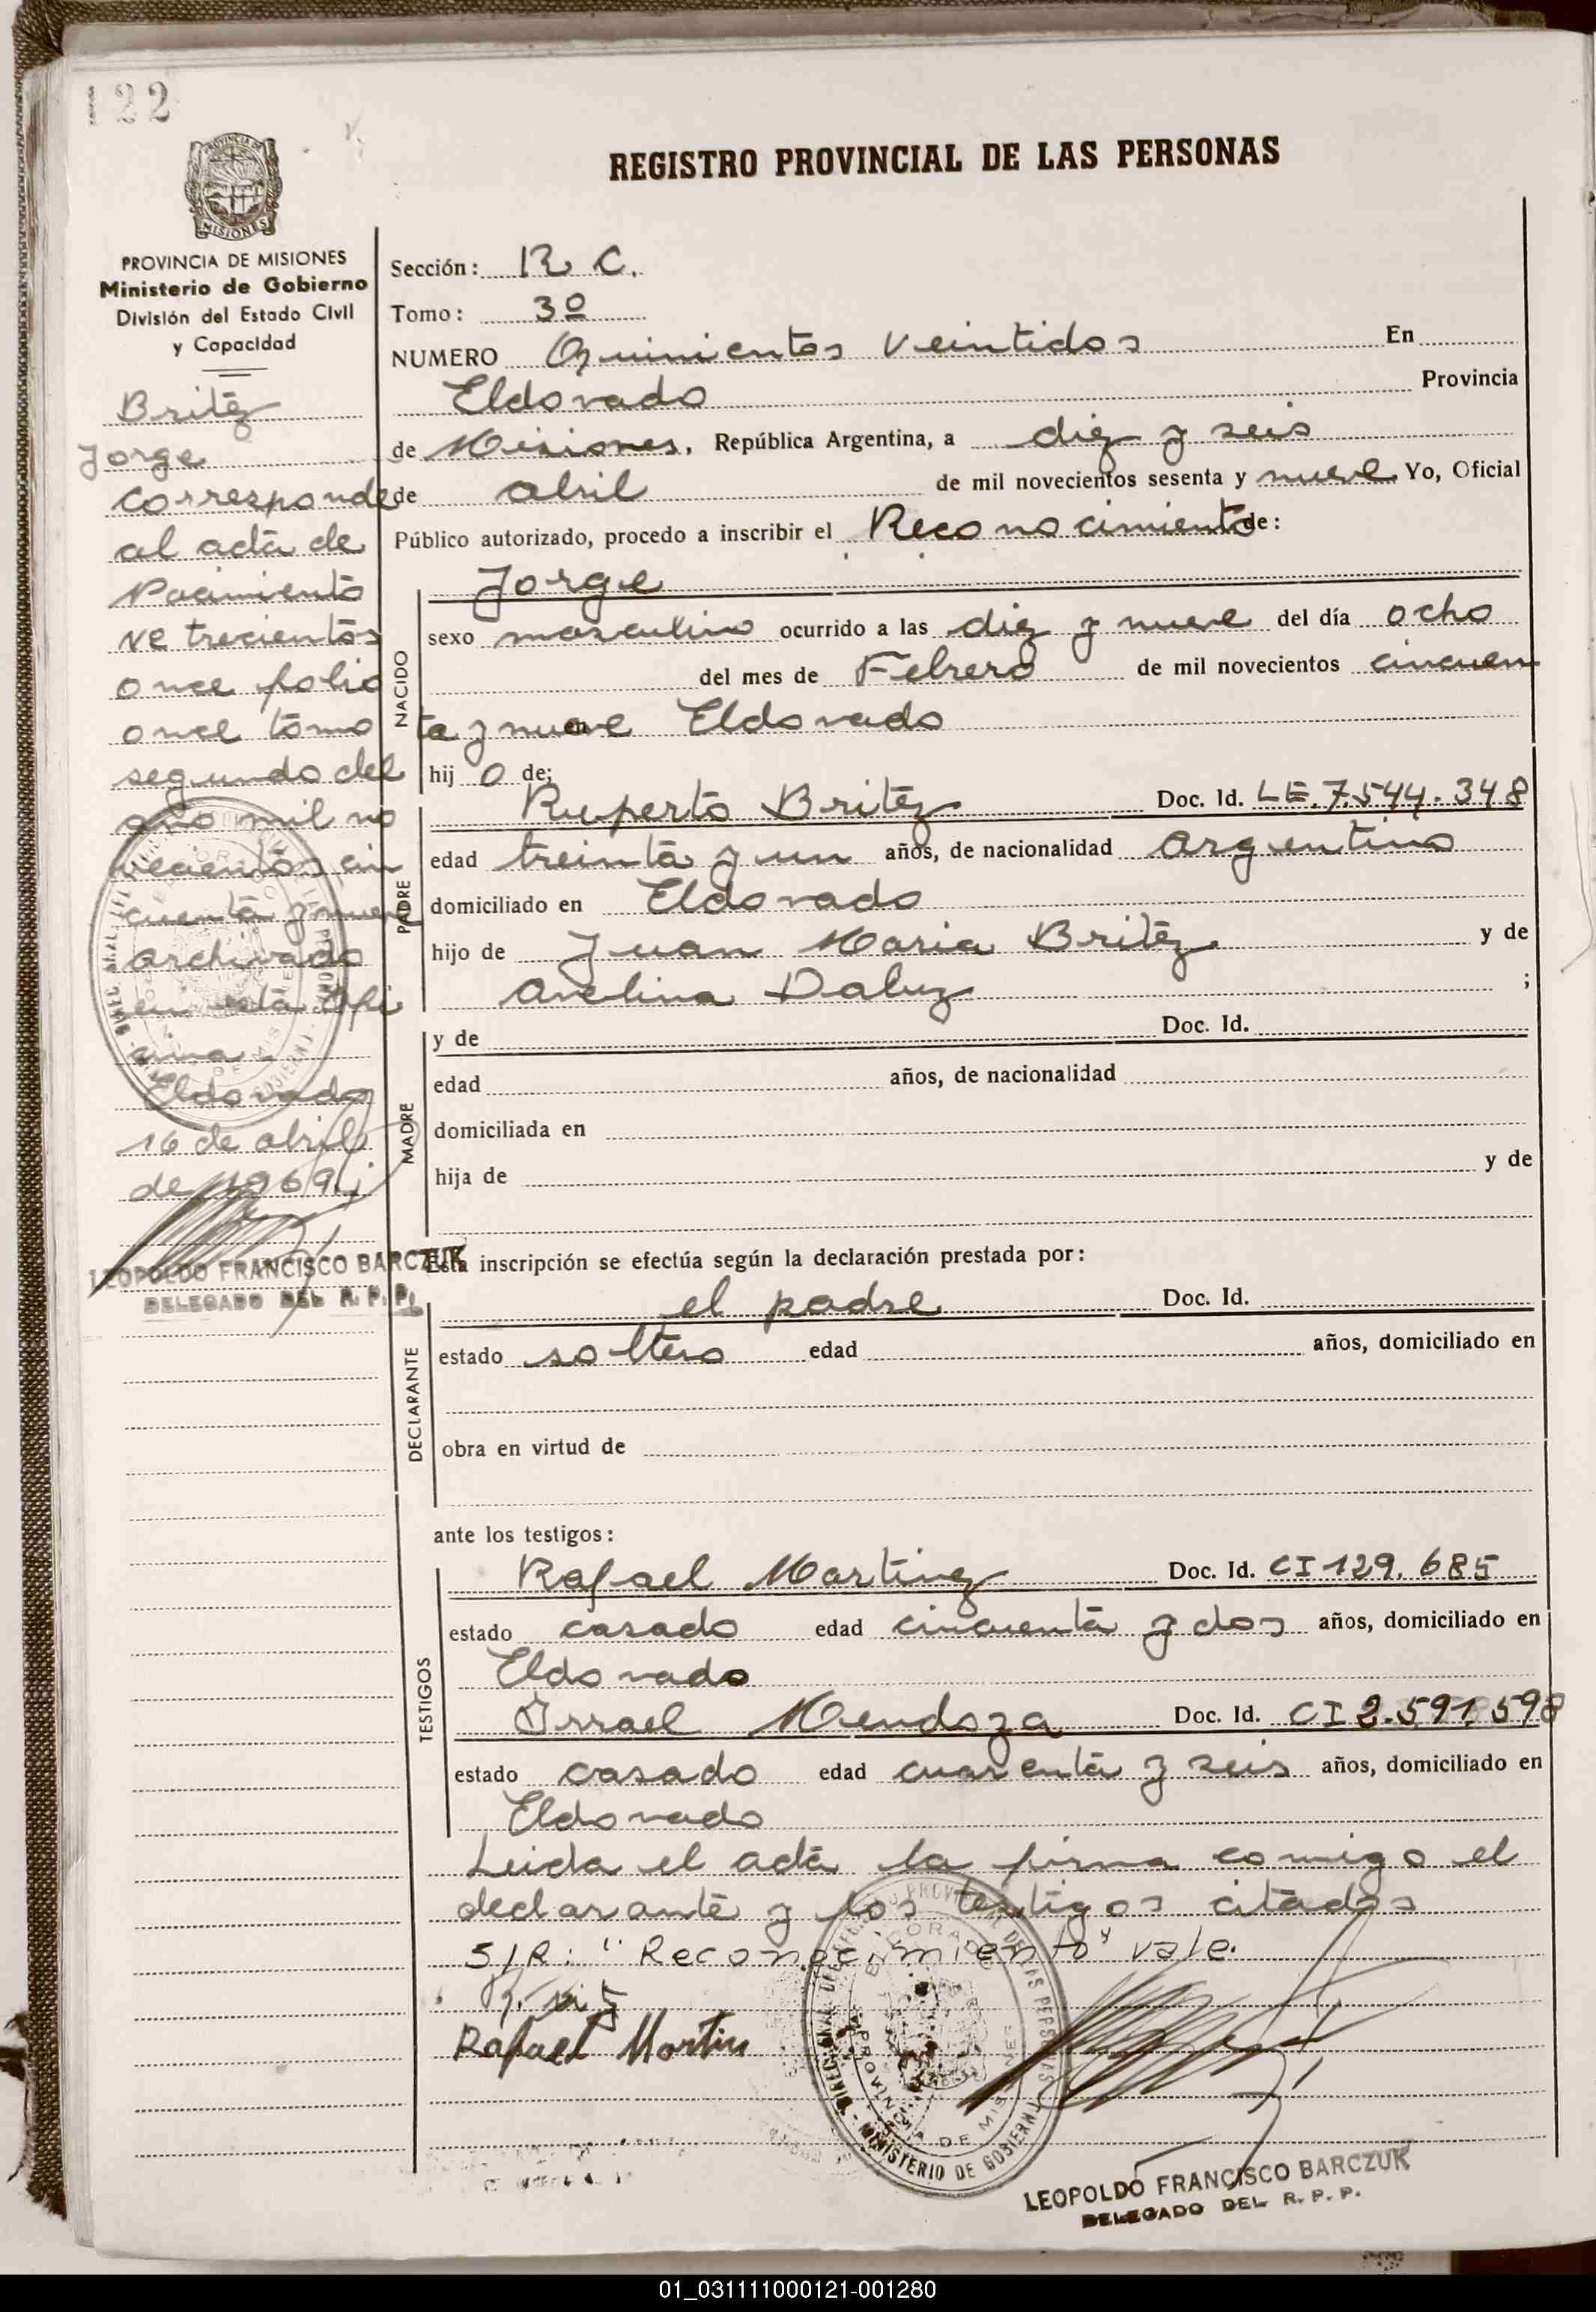 122
REGISTRO PROVINCIAL DE LAS PERSONAS
MISIONES
PROVINCIA DE MISIONES
Ministerio de Gobierno
División del Estado Civil
y Capacidad
Britez
Jorge
corresponde
al acta de
Nacimiento
Nº trecientos
once folio
once tomo
segundo del
año mil no
vecientos cin
cuenta y nueve
archivado
en esta Ofi
cina
Eldorado
16 de abril
de 1969
LEOPOLDO FRANCISCO BARCZUK
DELEGADO DEL R. P. P.
Sección: R C.
Tomo: 3º
NUMERO Quinientos veintidos En
Eldorado Provincia
de Misiones, República Argentina, a diez y seis
de abril de mil novecientos sesenta y nueve Yo, Oficial
Público autorizado, procedo a inscribir el Reconocimiento de:
NACIDO
Jorge
sexo masculino ocurrido a las diez y nueve del día ocho
del mes de Febrero de mil novecientos cincuen
ta y nueve en Eldorado
hij o de;
PADRE
Ruperto Britez Doc. Id. LE. 7.544.348
edad treinta y un años, de nacionalidad argentino
domiciliado en Eldorado
hijo de Juan Maria Britez y de
Avelina Daluz ;
MADRE
y de Doc. Id.
edad años, de nacionalidad
domiciliada en
hija de y de
Esta inscripción se efectúa según la declaración prestada por:
DECLARANTE
el padre Doc. Id.
estado soltero edad años, domiciliado en
obra en virtud de
ante los testigos:
TESTIGOS
Rafael Martinez Doc. Id. CI 129.685
estado casado edad cincuenta y dos años, domiciliado en
Eldorado
Israel Mendoza Doc. Id. CI 2.591.598
estado casado edad cuarenta y seis años, domiciliado en
Eldorado
Leida el acta la firma comigo el
declarante y los testigos citados
S/R: "Reconocimiento" vale.
Rafael Martin
ELDORADO
PROVINCIA DE MISIONES
MINISTERIO DE GOBIERNO
LEOPOLDO FRANCISCO BARCZUK
DELEGADO DEL R. P. P.
01_031111000121-001280